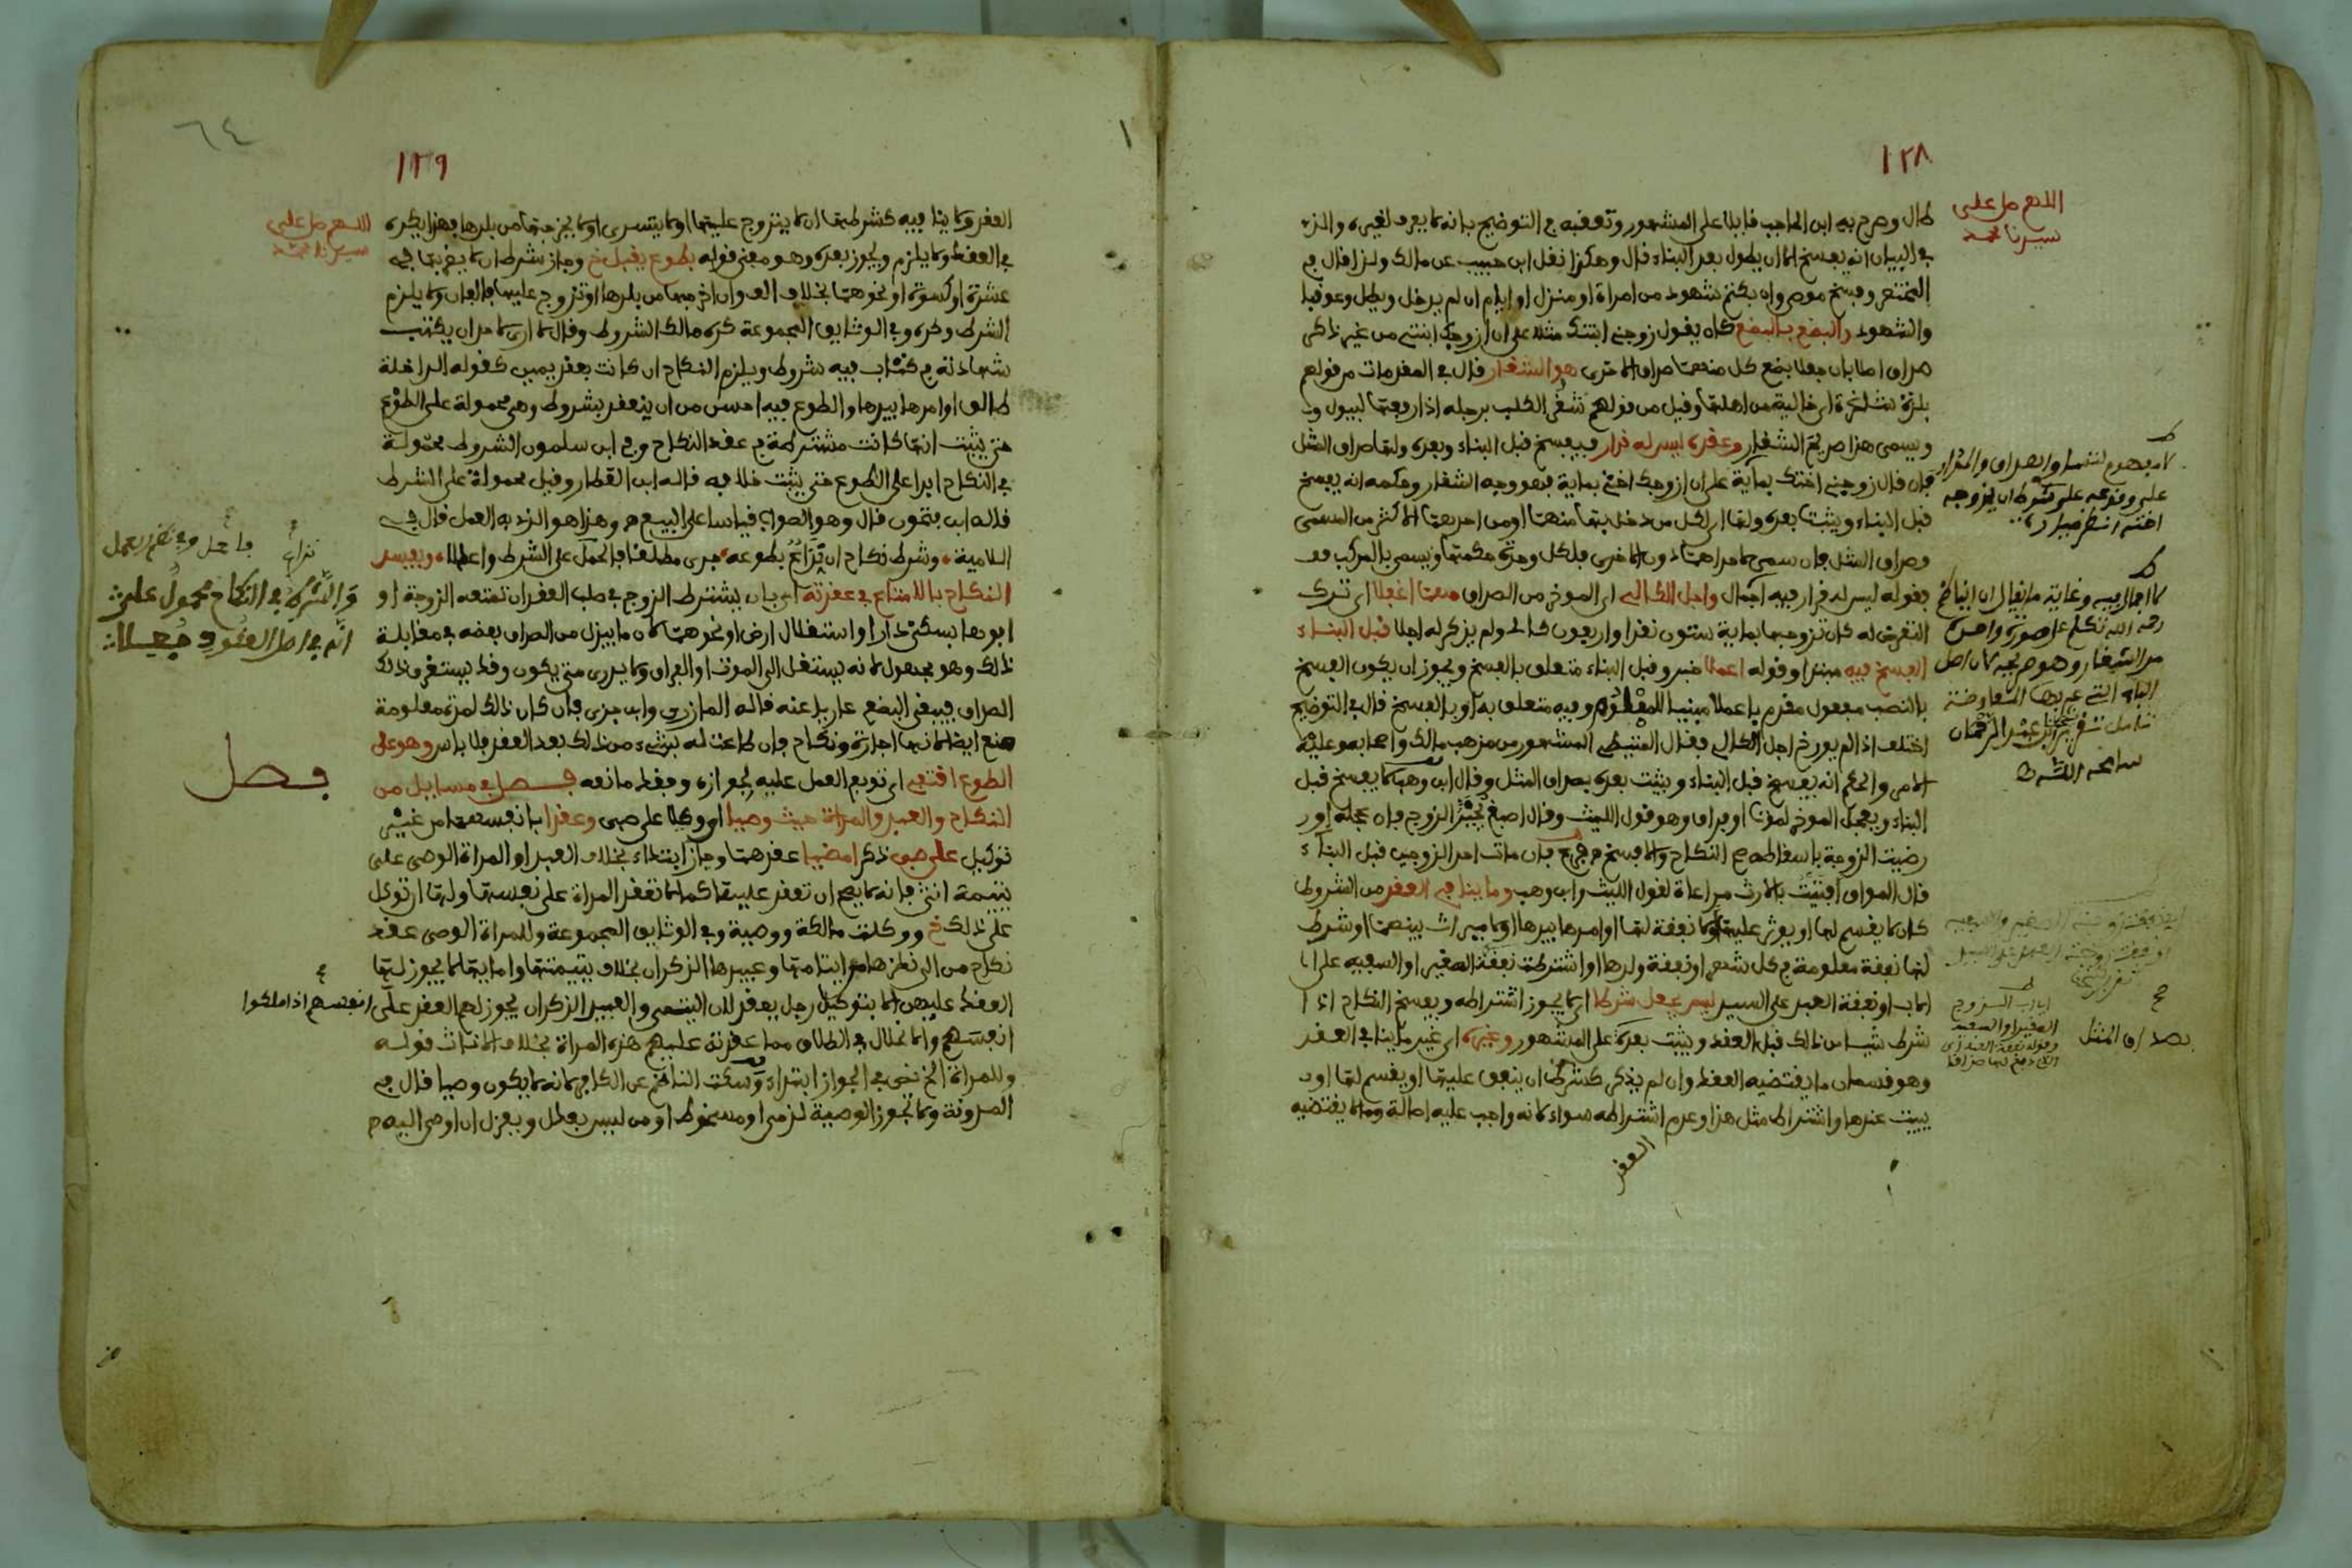 ١٢٨
اللهم صل على
سيدنا محمد
طال وصرح به ابن الحاجب قائلا على المشهور وتعقبه في التوضيح بانه لا يعرف لغيره والذي
في البيان انه يفسخ الا ان يطول بعد البناء قال وهكذا نقل ابن حبيب عن مالك ولذا قال في
المختصر وفسخ موصى وان بكتم شهود من امراة او منزل او ايام ان لم يدخل ويطل وعوقبا
والشهود والبضع بالبضع كان يقول زوجني ابنتك مثلا على ان ازوجك ابنتي من غير ذكر
صداق اصلا بان جعلا بضع كل منهما صداق الاخرى هو الشغار قال في المقدمات من قولهم
بلدة شاغرة اي خالية من اهلها وقيل من قولهم شغر الكلب برجله اذا رفعها ليبول و
ويسمى هذا صريح الشغار وعقده ليس له قرار فيفسخ قبل البناء وبعده ولها صداق المثل
فان قال زوجني اختك بماية على ان ازوجك اختي بماية فهو وجه الشغار وحكمه انه يفسخ
قبل البناء ويثبت بعده ولها اي لكل من دخل بها منهما او من احديهما الاكثر من المسمى
وصداق المثل فان سمى لاحداهما دون الاخرى فلكل وحدة حكمها ويسمى بالمركب
فقوله ليس له قرار فيه اجمال واجل الكالي اي الموخر من الصداق مهما اغفلا اي ترك
التعرض له كان تزوجها بماية ستون نقدا واربعون كالئ ولم يذكر له اجلا قبل البناء
الفسخ فيه مبتدا وقوله اعملا خبر وقبل البناء متعلق بالفسخ ويجوز ان يكون الفسخ
بالنصب مفعول مقدم باعملا مبنيا للمعلوم وفيه متعلق به او بالفسخ قال في التوضيح
اختلف اذا لم يورخ اجل الكالئ فقال المتيطي المشهور من مذهب مالك واصحابه وعليه
الامر والحكم انه يفسخ قبل البناء ويثبت بعده بصداق المثل وقال ابن وهب لا يفسخ قبل
البناء ويعجل الموخر لموت او فراق وهو قول الليث وقال اصبغ يخير الزوج فان عجله او ر
رضيت الزوجة باسقاطه صح النكاح والا فسخ فان مات احد الزوجين قبل البناء
قال المواق افتيت بالارث مراعاة لقول الليث وابن وهب وما ينافي العقد من الشروط
كان لا يقسم لها او يوثر عليها او لا نفقة لها او امرها بيدها او لا ميراث بينهما او شرط
لها نفقة معلومة في كل شهر او نفقة ولدها او اشترطت نفقة الصغير او السفيه على ا
الاب او نفقة العبد على السيد ليس يحل شرطا اي لا يجوز اشتراطه ويفسخ النكاح اذا
شرط شيا من ذلك قبل العقد ويثبت بعده على المشهور وغيره اي غير ما ينافي العقد
وهو قسمان ما يقتضيه العقد وان لم يذكر كشرط ان ينفق عليها او يقسم لها او
يبيت عندها واشتراط مثل هذا وعدم اشتراطه سواء لانه واجب عليه اصالة وما لا يقتضيه
العقد
على وقوعه على شرط ان يزوجه
اخته انظر ميارة
لا اجمال فيه وغاية ما يقال ان الناظم
رحمه الله تكلم على صورة واحدة
من الشغار وهو صريحه لان اصل
الباب
تامل
بصداق المثل
٦٤
١٢٩
اللهم صل على
سيدنا محمد
العقد ولا ينافيه كشرطها ان لا يتزوج عليها او لا يتسرى او لا يخرجها من بلدها فهذا يكره
في العقد ولا يلزم ويجوز بعده وهو معنى قوله بطوع يقبل خ وجاز شرط ان لا يضر بها في
عشرة او كسوة او نحوهما بخلاف الف وان اخرجها من بلدها او تزوج عليها فالفان ولا يلزم
الشرط وكره وفي الوثايق المجموعة كره مالك الشروط وقال لا ارى لاحد ان يكتب
شهادته في كتاب فيه شروط ويلزم النكاح ان كانت بعقد يمين كقوله الداخلة
طالق او امرها بيدها والطوع فيه احسن من ان ينعقد بشروط وهي محمولة على الطوع
حتى يثبت انها كانت مشترطة في عقد النكاح وفي ابن سلمون الشروط محمولة
في النكاح ابدا على الطوع حتى يثبت خلافه قاله ابن القطار وقيل محمولة على الشرط
قاله ابن فتحون قال وهو الصواب قياسا على البيع وهذا هو الذي به العمل قال في
اللامية وشرط نكاح ان نزاع بطوعه جرى مطلقا فاحمل على الشرط واعملا ويفسد
النكاح بالامتاع في عقدته اي بان يشترط الزوج في صلب العقد ان تمتعه الزوجة او
ابوها بسكنى دار او استغلال ارض او نحوهما لان ما يبذل من الصداق بعضه في مقابلة
ذلك وهو مجهول لانه يستغل الى الموت او الفراق ولا يدرى متى يكون وقد يستغرق ذلك
الصداق فيبقى البضع عاريا عنه قاله المازري وابن جزي فان كان ذلك لمدة معلومة
منع ايضا لانها اجارة ونكاح فان طاعت له بشيء من ذلك بعد العقد فلا باس وهو على
الطوع اقتفي اي توبع العمل عليه لجوازه وفقد مانعه فصل في مسايل من
النكاح والعبد والمراة حيث وصيا او وكلا على صبي وعقدا بانفسهما من غير
توكيل على صبي ذكر امضيا عقدهما وجاز ابتداء بخلاف العبد او المراة الوصي على
يتيمة انثى فانه لا يصح ان تعقد عليها كما لا تعقد المراة على نفسها ولها ان توكل
على ذلك خ ووكلت مالكة ووصية وفي الوثايق المجموعة وللمراة الوصي عقد
نكاح من الى نظرها من ايتامها وعبيدها الذكران بخلاف يتيمتها وامايها لا يجوز لها
العقد عليهن الا بتوكيل رجل يعقد لان اليتمى والعبيد الذكران يجوز لهم العقد على انفسهم اذا ملكوا
انفسهم والانحلال في الطلاق مما عقدته عليهم هذه المراة بخلاف الاناث قوله
وللمراة الخ نص في الجواز ابتداء وسكت الناظم عن الكافر لانه لا يكون وصيا قال في
المدونة ولا تجوز الوصية لذمي او مسخوط او من ليس بعدل ويعزل ان اوصى اليه
فاعمل وفي نظم العمل
والشرط في النكاح محمول على
انه في اصل العقود جعلا
فصل